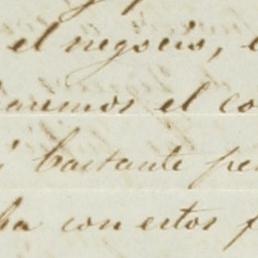 el negocio, e
aremos el co
bastante pe
ha con estos f